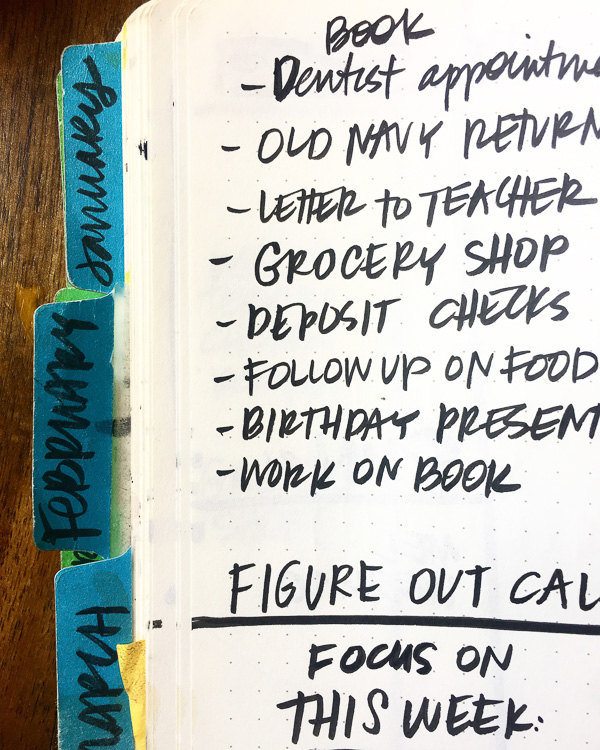 BOOK
- Dentist appointme
- OLD NAVY RETURN
- LETTER to TEACHER
- GROCERY SHOP
- DEPOSIT CHECKS
- FOLLOW UP ON FOOD
- BIRTHDAY PRESENT
- WORK ON BOOK
FIGURE OUT CAL
FOCUS ON
THIS WEEK:
January
FEBRUARY
MARCH